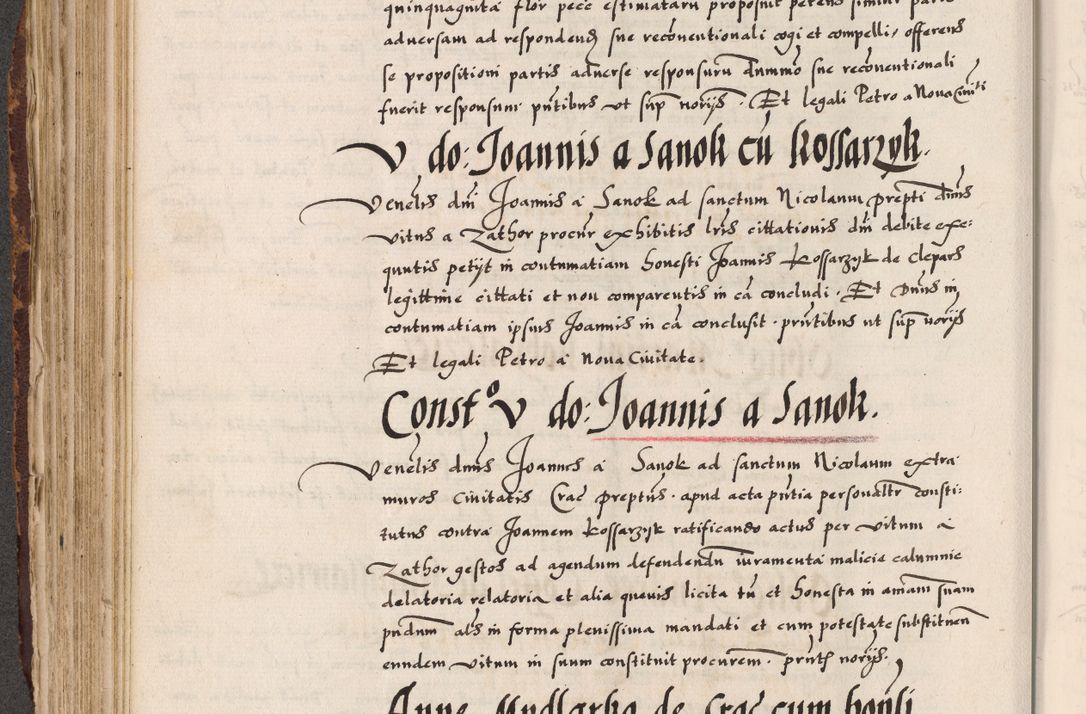 quinquaginta flor pecc estimataru proposuit petens simili parte
adversam ad respondend sue reconventionali cogi et compelli, offerens
se propositioni partis adverse responsuru dummo sue reconventionali
fuerit responsum pntibus ut sup norijs. Et legali Petro a Nova Civiti
V do: Joannis a Sanok cu Kossarzyk.
Venelis dni Joannis a Sanok ad sanctum Nicolaum prepti dnus
Vitus a Zathor procur exhibitis lris cittationis dni debite exe:
quutis petyt in contumatiam honesti Joannis Kossarzyk de Clepars
legittime cittati et non comparentis in ca concludi. Et Dnus in
contumatiam ipsius Joannis in ca conclusit. pntibus ut sup norijs
Et legali Petro a Nova Civitate.
Consto V do: Joannis a Sanok.
Venelis dnus Joannes a Sanok ad sanctum Nicolaum extra
muros Civitatis Crac preptus. apud acta pntia personaltr consti:
tutus contra Joannem Kossarzyk ratificando actus per Vitum a
Zathor gestos ad agendum defendendu iuramenta malicie calumnie
delatoria relatoria et alia quevis licita tn et honesta in amam suam
pndum als in forma plenissima mandati et cum potestate substituen
eundem Vitum in suum constituit procurem. pntb norijs.
Anne Mydlarka de Crac cum honsti